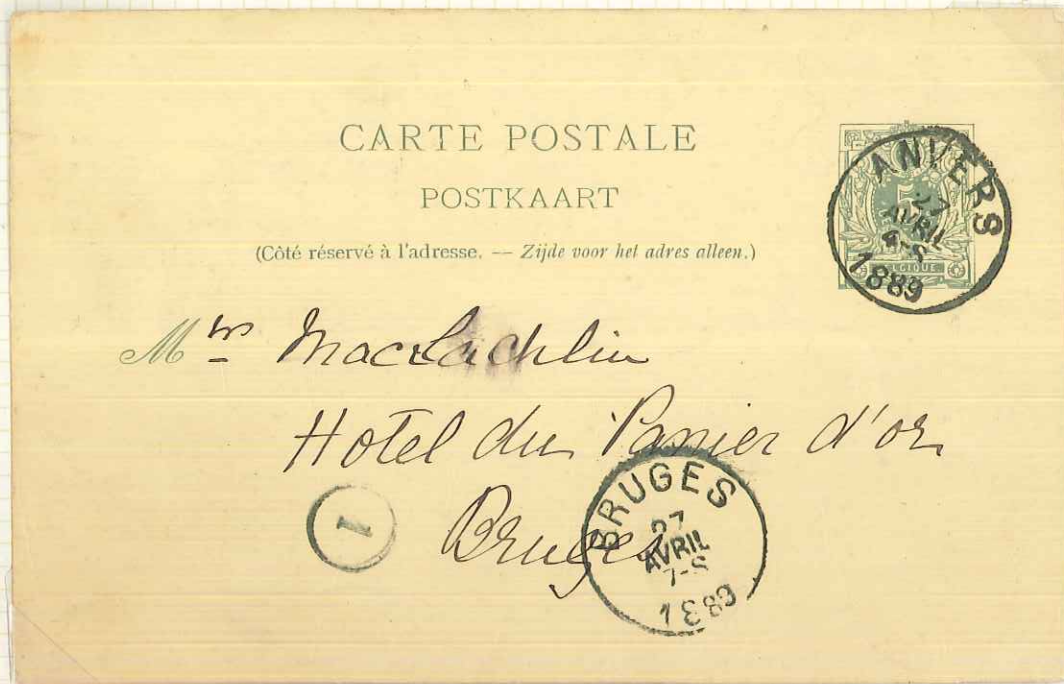 CARTE POSTALE
POSTKAART
(Côté réservé à l'adresse. — Zijde voor het adres alleen.)
5
BELGIQUE
ANVERS
27
AVRIL
4-S
1889
Mrs MacLachlin
Hotel du Panier d'or
Bruges
1
BRUGES
27
AVRIL
7-S
1889